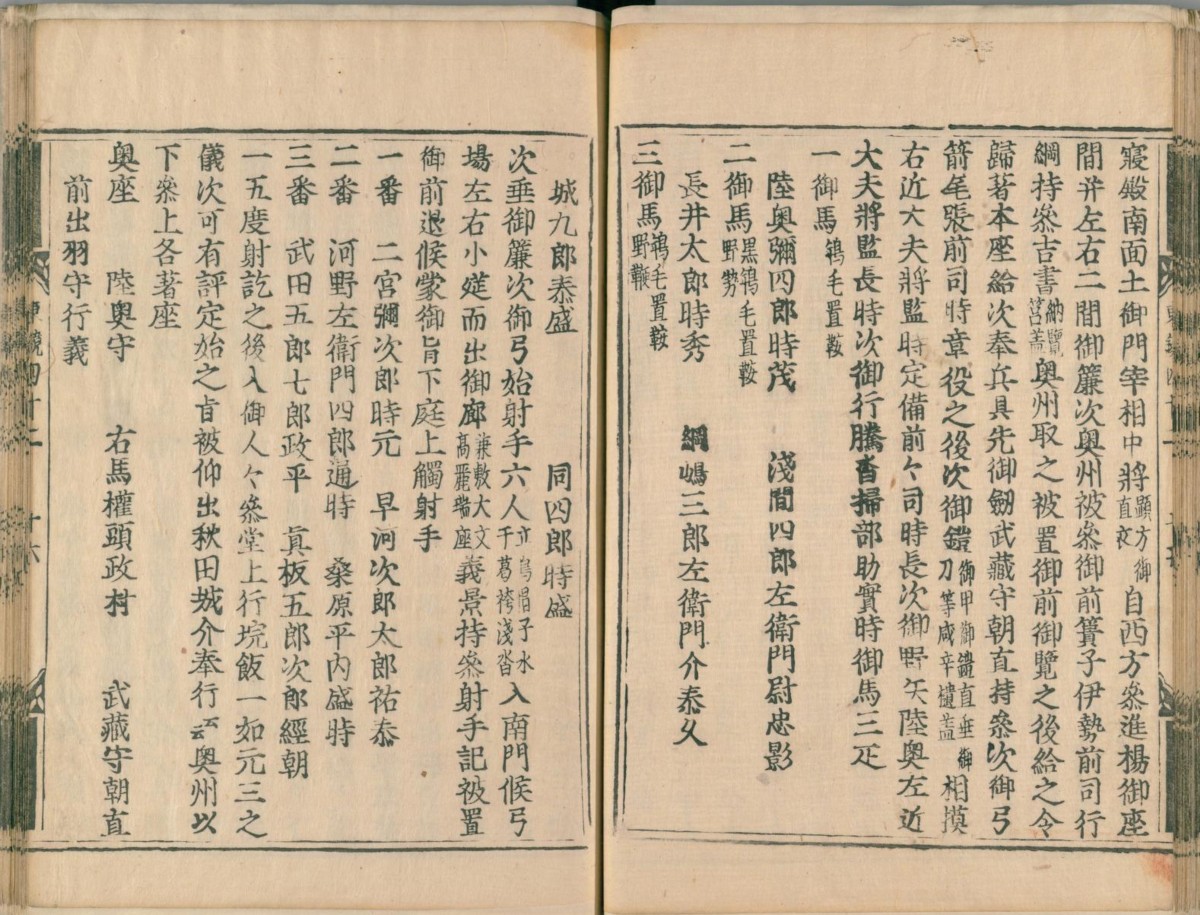 寢殿南面土御門宰相中將顯方御直衣自西方參進楊御座
間并左右二間御簾次奥州被參御前簀子伊勢前司行
綱持參吉書納覽筥盖奥州取之被置御前御覽之後給之令
歸著本座給次奉兵具先御劔武藏守朝直持參次御弓
箭尾張前司時章役之後次御鎧御甲御鎧直垂御刀等咸辛櫃盖相摸
右近大夫將監時定備前々司時長次御野矢陸奥左近
大夫將監長時次御行騰沓掃部助實時御馬三疋
一御馬鴾毛置鞍
陸奥彌四郎時茂 淺間四郎左衛門尉忠影
二御馬黒鴾毛置鞍野勞
長井太郎時秀 綱嶋三郎左衛門介泰乆
三御馬鴾毛置鞍野鞭
城九郎泰盛 同四郎時盛
次垂御簾次御弓始射手六人立烏帽子水干葛袴淺沓入南門候弓
場左右小莚而出御廊兼敷大文高麗端座義景持參射手記被置
御前退候蒙御旨下庭上觸射手
一番 二宮彌次郎時元 早河次郎太郎祐泰
二番 河野左衛門四郎通時 桑原平内盛時
三番 武田五郎七郎政平 眞板五郎次郎經朝
一五度射訖之後入御人々參堂上行垸飯一如元三之
儀次可有評定始之旨被仰出秋田城介奉行云云奥州以
下參上各著座
奥座 陸奥守 右馬權頭政村 武藏守朝直
前出羽守行義